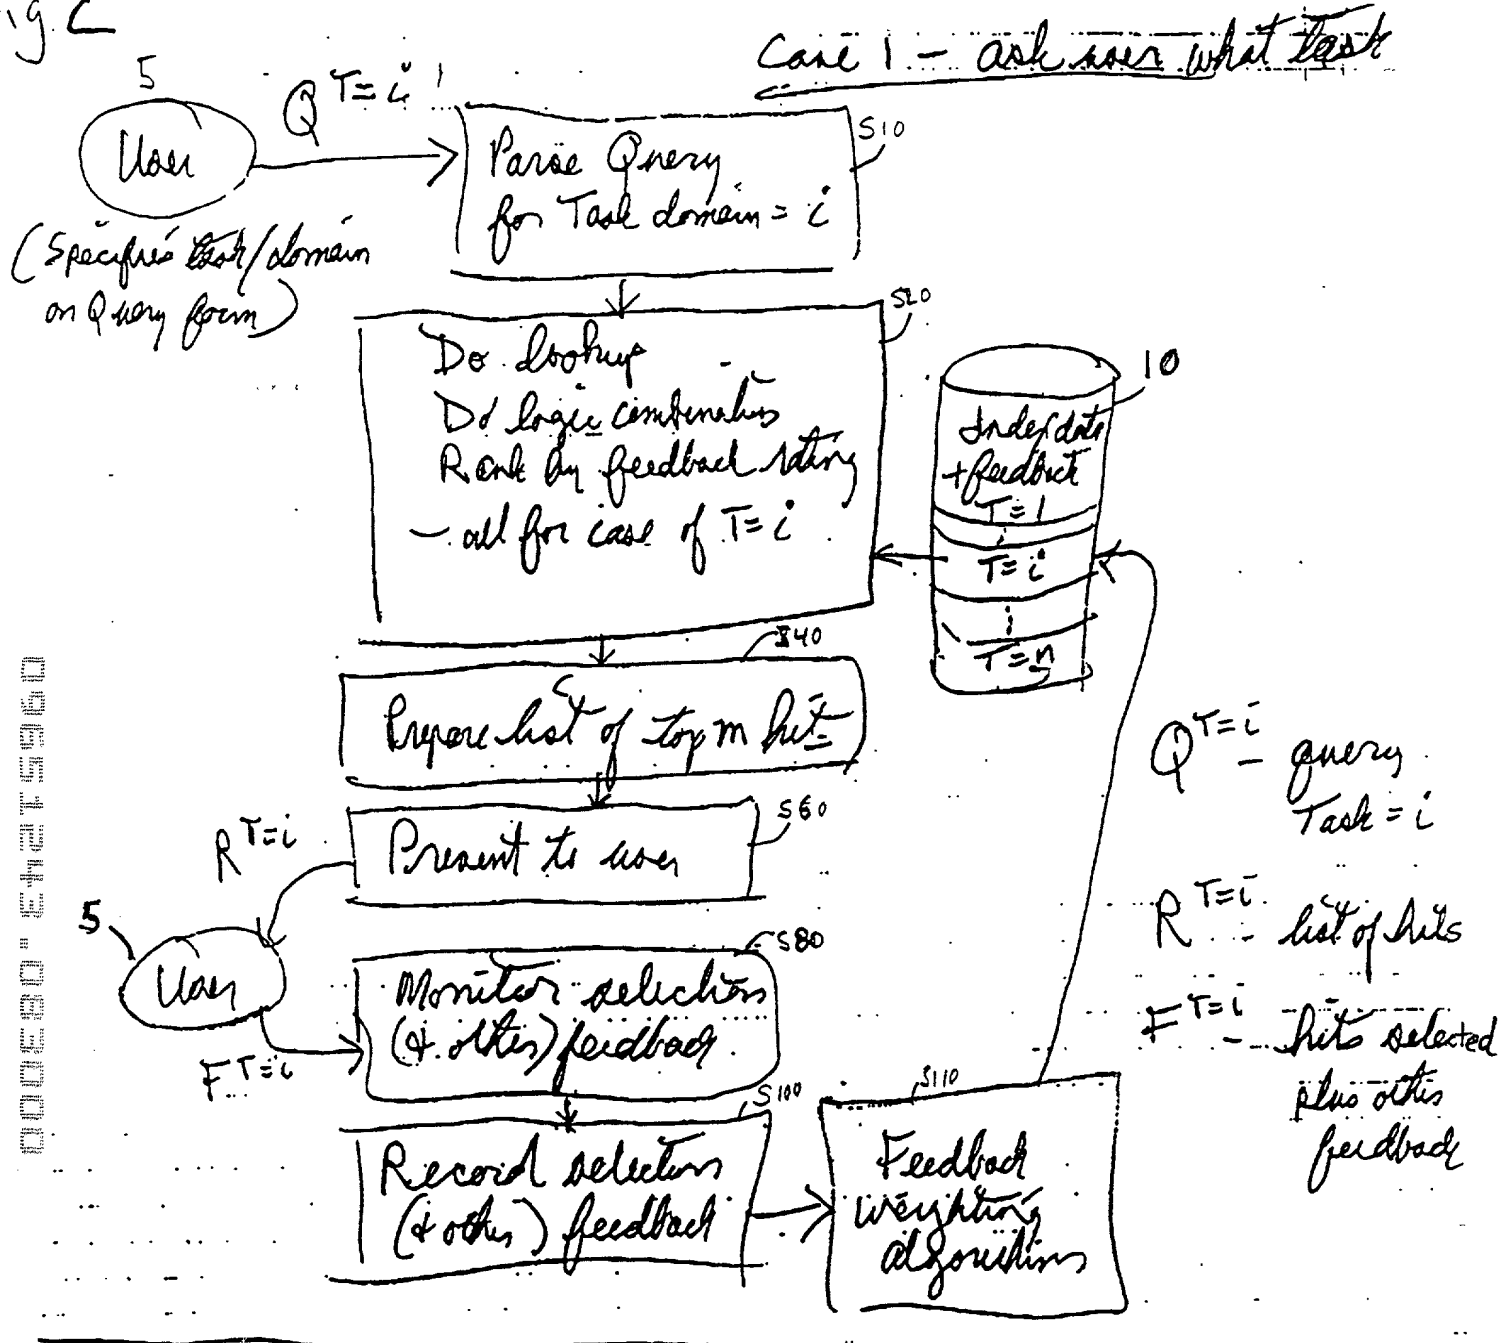 Fig. 2
Case 1 - ask user what task
5
Q T=i
User
(Specifies task/domain
on Query form)
S10
Parse Query
for Task domain = i
S20
Do lookup
Do logic combinations
Rank by feedback rating
- all for case of T=i
10
Index data
+ feedback
T=1
T=i
T=n
S40
Prepare list of top m hits
S60
Present to user
R T=i
5
User
F T=i
S80
Monitor selections
(& other) feedback
S100
Record selections
(& other) feedback
S110
Feedback
weighting
algorithms
Q T=i - query
Task = i
R T=i - list of hits
F T=i - hits selected
plus other
feedback